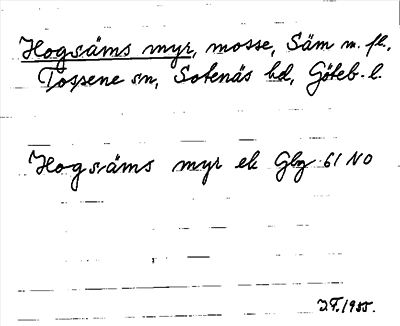 Hogsäms myr, mosse, Säm m. fl.,
Tossene sn, Sotenäs hd, Göteb. l.
Hogsäms myr ek Gbg 61 NO
J.F. 1955.